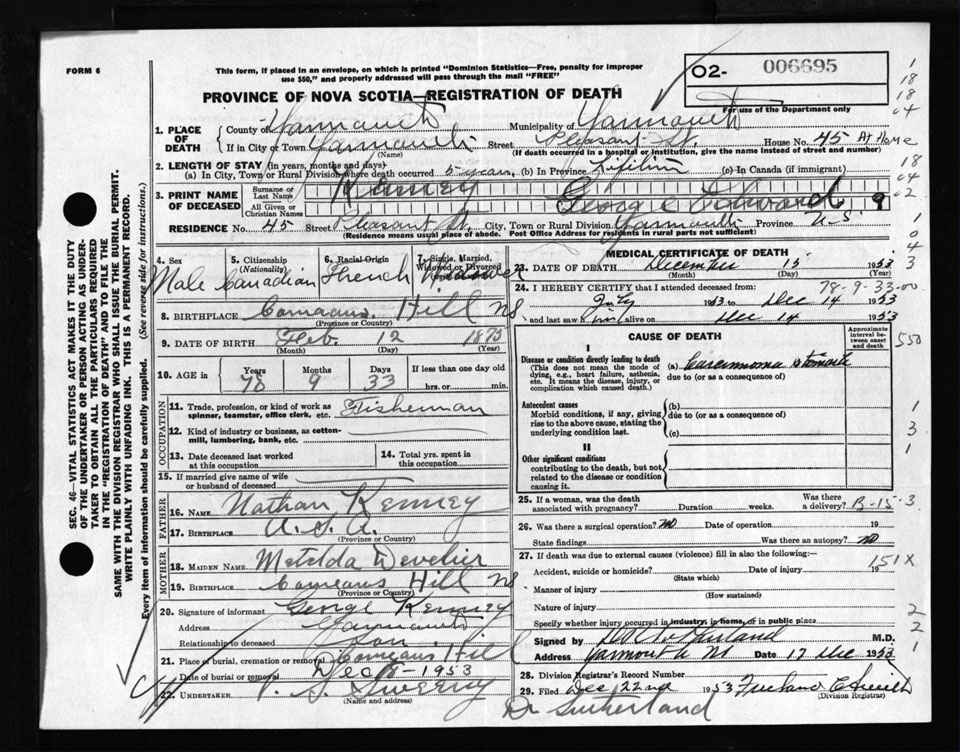 FORM 6
This form, if placed in an envelope, on which is printed "Dominion Statistics—Free, penalty for improper
use $50," and properly addressed will pass through the mail "FREE"
O2- 006695
For use of the Department only
PROVINCE OF NOVA SCOTIA—REGISTRATION OF DEATH
1. PLACE OF DEATH
County of Yarmouth Municipality of Yarmouth
If in City or Town Yarmouth Street Pleasant St. House No. 45 At Home
(Name) (If death occurred in a hospital or institution, give the name instead of street and number)
2. LENGTH OF STAY (in years, months and days)
(a) In City, Town or Rural Division where death occurred 5 years (b) In Province Lifetime (c) In Canada (if immigrant)
3. PRINT NAME OF DECEASED
Surname or Last Name Kenney
All Given or Christian Names George Edward
RESIDENCE No. 45 Street Pleasant St. City, Town or Rural Division Yarmouth Province N.S
(Residence means usual place of abode. Post Office Address for residents in rural parts not sufficient)
4. Sex Male
5. Citizenship (Nationality) Canadian
6. Racial Origin French
7. Single, Married, Widowed or Divorced Widower
8. BIRTHPLACE Comeaus Hill NS
(Province or Country)
9. DATE OF BIRTH Feb. 12 1875
(Month) (Day) (Year)
10. AGE in Years Months Days If less than one day old
78 9 33 hrs. or min.
OCCUPATION
11. Trade, profession, or kind of work as spinner, teamster, office clerk, etc. Fisherman
12. Kind of industry or business, as cotton-mill, lumbering, bank, etc.
13. Date deceased last worked at this occupation
14. Total yrs. spent in this occupation
15. If married give name of wife or husband of deceased
FATHER
16. NAME Nathan Kenney
17. BIRTHPLACE U.S.A.
(Province or Country)
MOTHER
18. MAIDEN NAME Matilda
19. BIRTHPLACE Comeaus Hill NS
(Province or Country)
20. Signature of informant George Kenney
Address Yarmouth
Relationship to deceased Son
21. Place of burial, cremation or removal Comeaus Hill
Date of burial or removal Dec 1953
22. UNDERTAKER V. S. Sweeny
(Name and address)
MEDICAL CERTIFICATE OF DEATH
23. DATE OF DEATH December 15 1953
(Month) (Day) (Year)
24. I HEREBY CERTIFY that I attended deceased from: 78-9-33-00
July 1953 to Dec 14 1953
and last saw him alive on Dec 14 1953
CAUSE OF DEATH
Approximate interval between onset and death
I
Disease or condition directly leading to death
(This does not mean the mode of dying, e.g., heart failure, asthenia, etc. It means the disease, injury, or complication which caused death.)
(a) Carcinoma stomach
due to (or as a consequence of)
Antecedent causes
Morbid conditions, if any, giving rise to the above cause, stating the underlying condition last.
(b)
due to (or as a consequence of)
(c)
II
Other significant conditions
contributing to the death, but not related to the disease or condition causing it.
25. If a woman, was the death associated with pregnancy? Duration weeks. Was there a delivery? B-15-3
26. Was there a surgical operation? No Date of operation 19
State findings Was there an autopsy? No
27. If death was due to external causes (violence) fill in also the following:—
151X
Accident, suicide or homicide? Date of injury 19
(State which)
Manner of injury
(How sustained)
Nature of injury
Specify whether injury occurred in industry, in home, or in public place
Signed by M.D.
Address Yarmouth NS Date 17 Dec 1953
28. Division Registrar's Record Number
29. Filed Dec 22nd 1953
(Division Registrar)
Dr Sutherland
SEC. 46—VITAL STATISTICS ACT MAKES IT THE DUTY
OF THE UNDERTAKER OR PERSON ACTING AS UNDER-
TAKER TO OBTAIN ALL THE PARTICULARS REQUIRED
IN THE "REGISTRATION OF DEATH" AND TO FILE THE
SAME WITH THE DIVISION REGISTRAR WHO SHALL ISSUE THE BURIAL PERMIT.
WRITE PLAINLY WITH UNFADING INK. THIS IS A PERMANENT RECORD.
Every item of information should be carefully supplied. (See reverse side for instructions.)
1
18
18
04
18
04
02
9
1
0
4
3
550
1
3
1
2
2
1